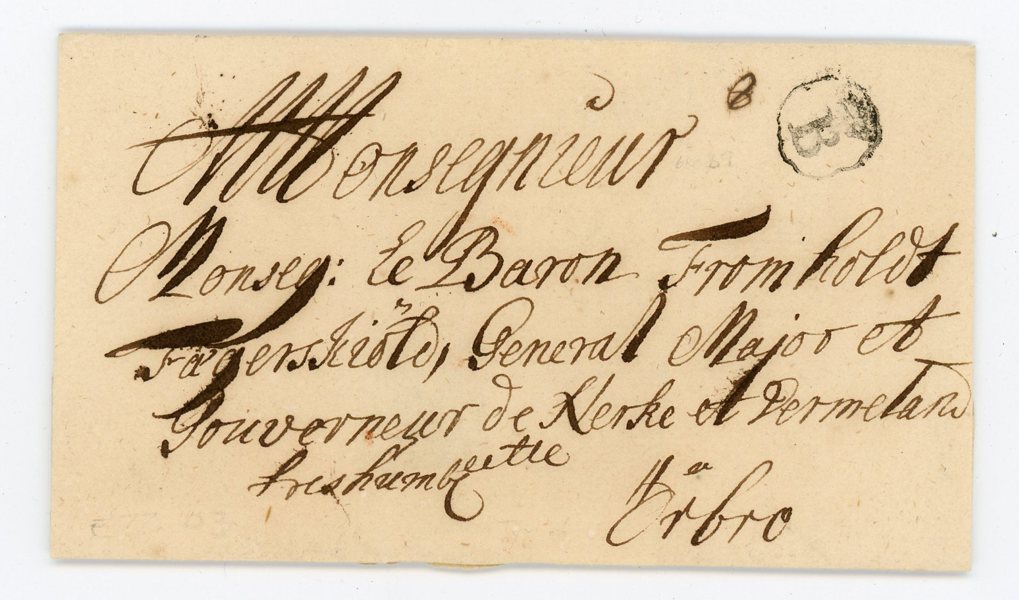 Monsegnieur
B
Monseg: Le Baron Fromholdt
Fägerskiöld, General Major et
Gouverneur de Nerke et Vermeland
treshumble
Örbro